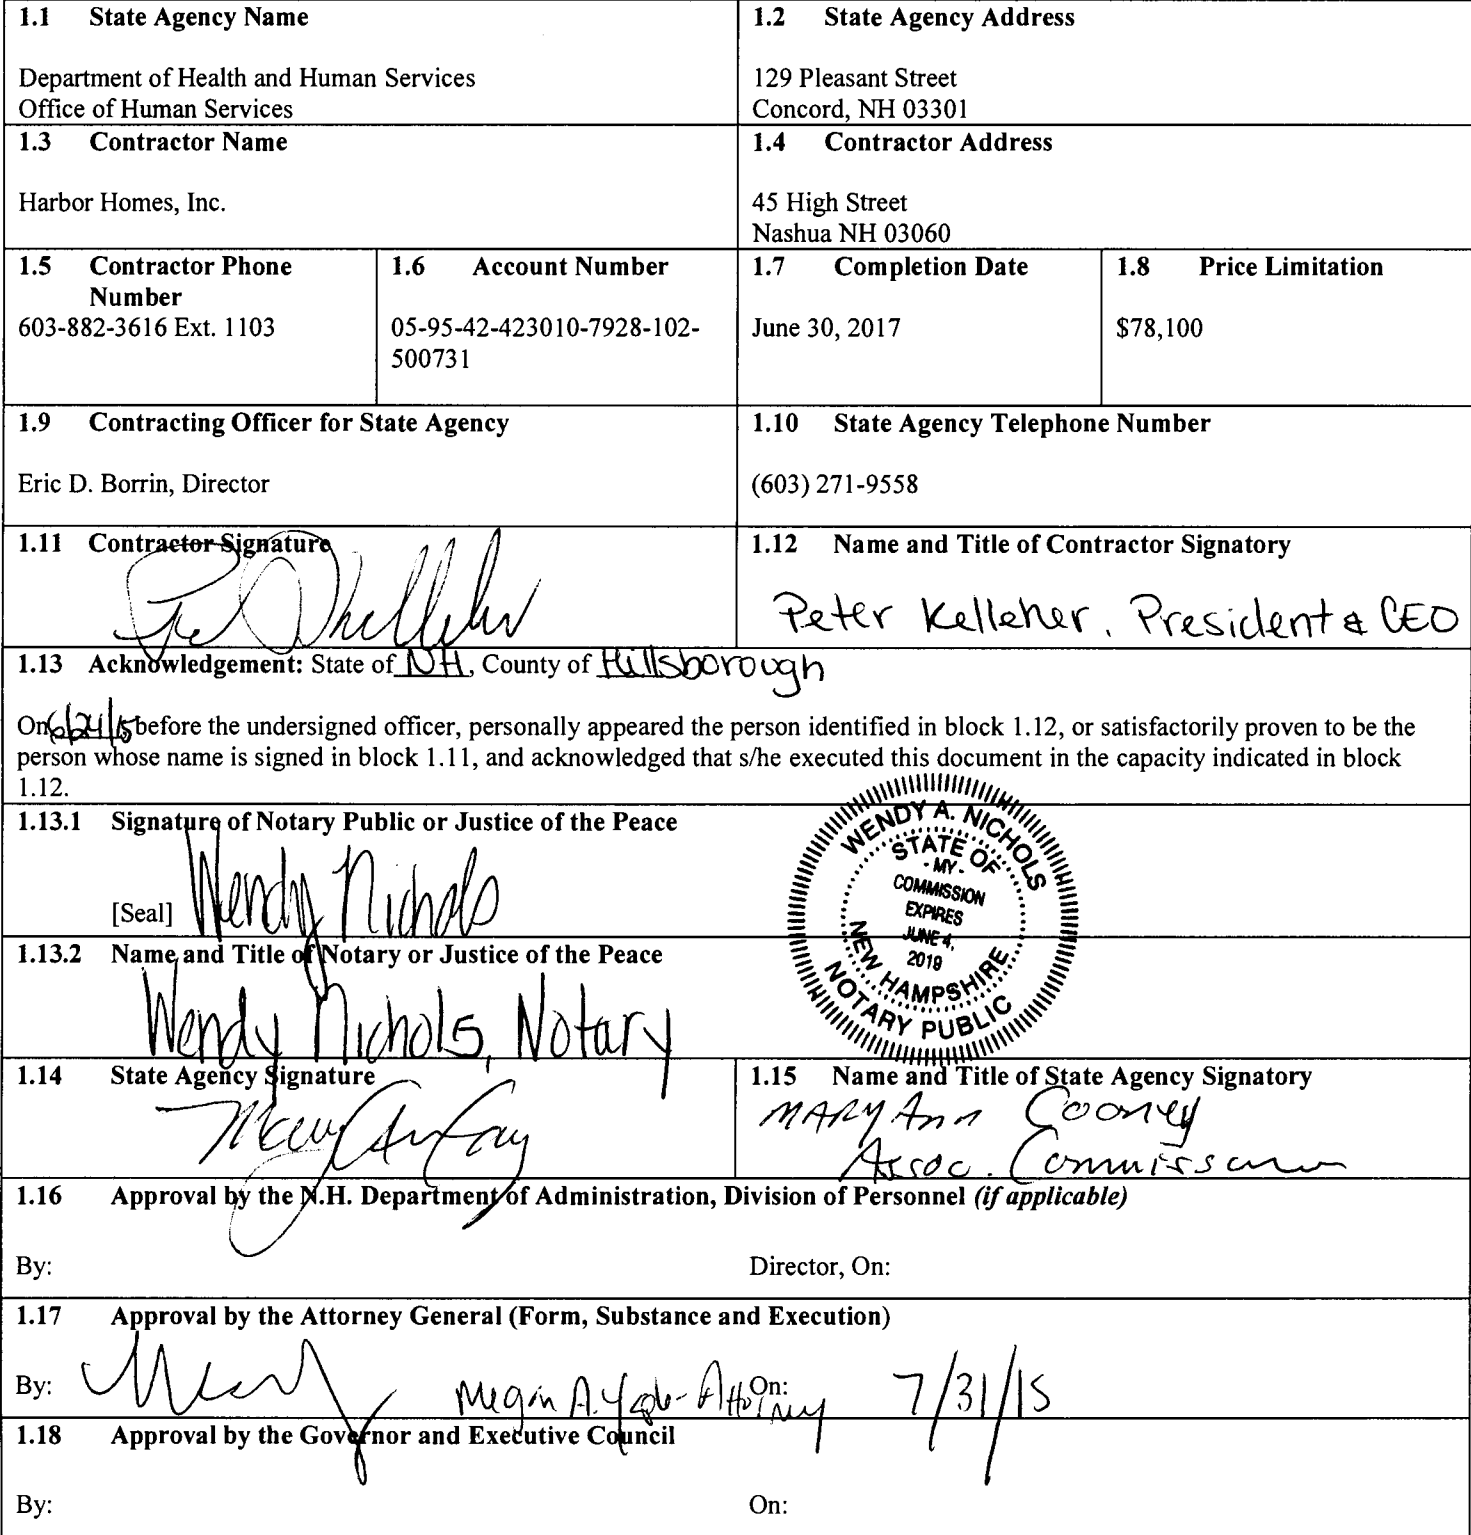 1.1 State Agency Name
Department of Health and Human Services
Office of Human Services
1.2 State Agency Address
129 Pleasant Street
Concord, NH 03301
1.3 Contractor Name
Harbor Homes, Inc.
1.4 Contractor Address
45 High Street
Nashua NH 03060
1.5 Contractor Phone
Number
603-882-3616 Ext. 1103
1.6 Account Number
05-95-42-423010-7928-102-
500731
1.7 Completion Date
June 30, 2017
1.8 Price Limitation
$78,100
1.9 Contracting Officer for State Agency
Eric D. Borrin, Director
1.10 State Agency Telephone Number
(603) 271-9558
1.11 Contractor Signature
1.12 Name and Title of Contractor Signatory
Peter Kelleher, President & CEO
1.13 Acknowledgement: State of NH, County of Hillsborough
On 6/24/15 before the undersigned officer, personally appeared the person identified in block 1.12, or satisfactorily proven to be the
person whose name is signed in block 1.11, and acknowledged that s/he executed this document in the capacity indicated in block
1.12.
1.13.1 Signature of Notary Public or Justice of the Peace
[Seal] Wendy Nichols
WENDY A. NICHOLS
STATE OF
- MY -
COMMISSION
EXPIRES
JUNE 4,
2019
NEW HAMPSHIRE
NOTARY PUBLIC
1.13.2 Name and Title of Notary or Justice of the Peace
Wendy Nichols, Notary
1.14 State Agency Signature
1.15 Name and Title of State Agency Signatory
MARY Ann Cooney
Assoc. Commissioner
1.16 Approval by the N.H. Department of Administration, Division of Personnel (if applicable)
By:
Director, On:
1.17 Approval by the Attorney General (Form, Substance and Execution)
By: Megan A. - Attorney On: 7/31/15
1.18 Approval by the Governor and Executive Council
By:
On: